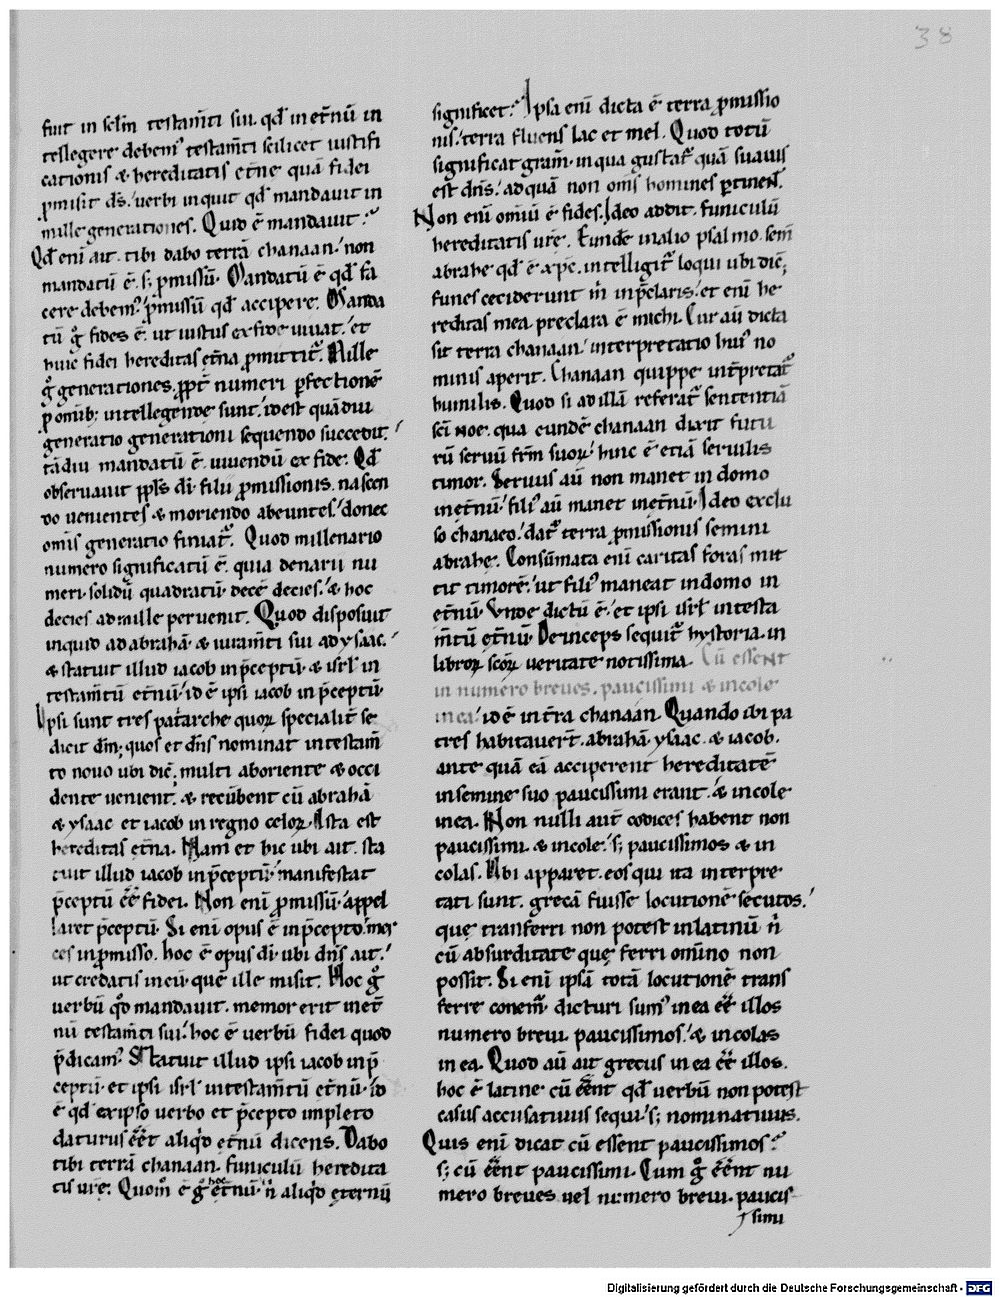 38
fuit in sclm̄ testam̄ti sui. qd̄ in et̄nū in
tellegere debem᷒ testam̄ti scilicet iustifi
cationis & hereditatis et̄ne quā fidei
p̄misit dś. uerbi inquit qd̄ mandauit in
mille generationes. Quid ē mandauit?
Qd̄ eni ait. tibi dabo terrā chanaan. non
mandatū ē. s; p̄missū. Mandatū ē qd̄ fa
cere debem᷒. p̄missū qd̄ accipere. Manda
tū g̊ fides ē. ut iustus ex fide uiuat. et
huic fidei hereditas et̄na p̄mittit᷑. Mille
g̊ generationes. ppt̄ numeri pfectionē
p omīb; intellegende sunt. id est quādiu
generatio generationi sequendo succedit.
tādiu mandatū ē. uiuendū ex fide. Qd̄
obseruauit ppl̄s di. filii p̄missionis. nascen
do uenientes & moriendo abeuntes. donec
omīs generatio finiat᷑. Quod millenario
numero significatū ē. quia denarii nu
meri solidū quadratū decē decies. & hoc
decies ad mille peruenit. Quod disposuit
inquid ad abrahā. & iuram̄ti sui ad ysaac.
& statuit illud iacob in p̄ceptū. & isrl̄ in
testam̄tū et̄nū. id ē ipsi iacob in p̄ceptū.
Ipsi sunt tres patarche quoꝝ specialit̄ se
dicit dm̄. quos et dn̄s nominat in testam̄
to nouo ubi dic̄. multi ab oriente & occi
dente uenient. & recūbent cū abrahā
& ysaac et iacob in regno celoꝝ. Ista est
hereditas et̄na. Nam et hic ubi ait. sta
tuit illud iacob in p̄ceptū. manifestat
p̄ceptū eē fidei. Non eni p̄missū appel
laret p̄ceptū. Si eni opus ē in p̄cepto. mer
ces in p̄misso. hoc ē opus di. ubi dn̄s ait.
ut credatis in eū. quē ille misit. Hoc g̊
uerbū qd̄ mandauit. memor erit in et̄
nū testam̄ti sui. hoc ē uerbū fidei quod
p̄dicam᷒. Statuit illud ipsi iacob in p̄
ceptū. et ipsi isrl̄ in testam̄tū et̄nū. id
ē qd̄ ex ipso uerbo et p̄cepto impleto
daturus eēt aliqd̄ et̄nū dicens. Dabo
tibi terrā chanaan. funiculū heredita
tis urē. Quom̄ ē g̊ hoc et̄nū. n̄ aliqd̄ ęternū
significet. Ipsa eni dicta ē terra p̄missio
nis. terra fluens lac et mel. Quod totū
significat gram̄. in qua gustat᷑ quā suauis
est dn̄s. ad quā non om̄s homines ptinent.
Non eni omiū ē fides. Ideo addit. funiculū
hereditatis urē. Eundē in alio psalmo. sem̄
abrahe qd̄ ē xp̄c. intelligit᷑ loqui ubi dic̄;
funes ceciderunt m̄ in p̄claris. et eni he
reditas mea preclara ē michi. Cur aū dicta
sit terra chanaan. interpretatio hui᷒ no
minis aperit. Chanaan quippe int̄pretat᷑
humilis. Quod si ad illā referat᷑ sententiā
sc̄i noe. qua eundē chanaan dixit futu
rū seruū frm̄ suoꝝ. hinc ē etiā seruilis
timor. Seruus aū non manet in domo
in et̄nū. fili᷒ aū manet in et̄nū. Ideo exclu
so chanaeo. dat᷑ terra p̄missionis semini
abrahę. Consūmata eni caritas foras mit
tit timorē. ut fili᷒ maneat in domo in
et̄nū. Vnde dictū ē. et ipsi isrl̄ in testa
m̄tū et̄nū. Deinceps sequit᷑ hystoria. in
libroꝝ scoꝝ ueritate notissima. Cū essent
in numero breues. paucissimi & incole
in ea. id ē in t̄ra chanaan. Quando ibi pa
tres habitauert̄. abrahā ysaac. & iacob.
ante quā eā acciperent hereditatē
in semine suo paucissimi erant. & incole
in ea. Non nulli aut̄ codices habent non
paucissimi. & incole. s; paucissimos & in
colas. Vbi apparet. eos qui ita interpre
tati sunt. grecā fuisse locutionē secutos.
quę transferri non potest in latinū n̄
cū absurditate quę ferri omīno non
possit. Si eni ipsā totā locutionē trans
ferre conem᷑. dicturi sum᷒ in ea eē illos
numero breui. paucissimos. & incolas
in ea. Quod aū ait grecus in ea eē illos.
hoc ē latine cū eēnt qd̄ uerbū non potest
casus accusatiuus sequi. s; nominatiuus.
Quis eni dicat cū essent paucissimos?
s; cū eēnt paucissimi. Cum g̊ eēnt nu
mero breues uel numero breui. paucis
simi
Digitalisierung gefördert durch die Deutsche Forschungsgemeinschaft - DFG